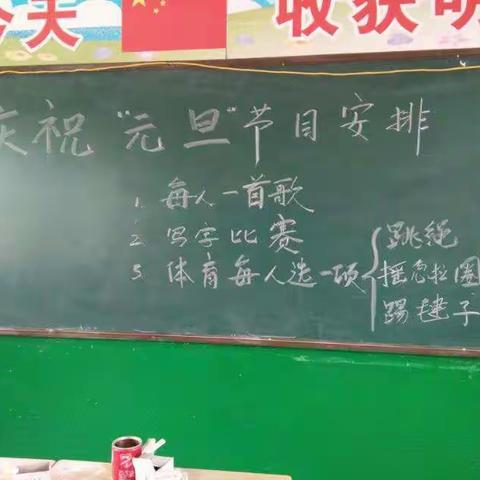 今天 收获明
庆祝"元旦"节目安排
1. 每人一首歌
2. 写字比赛
3. 体育每人选一项
跳绳
摇忽拉圈
踢毽子